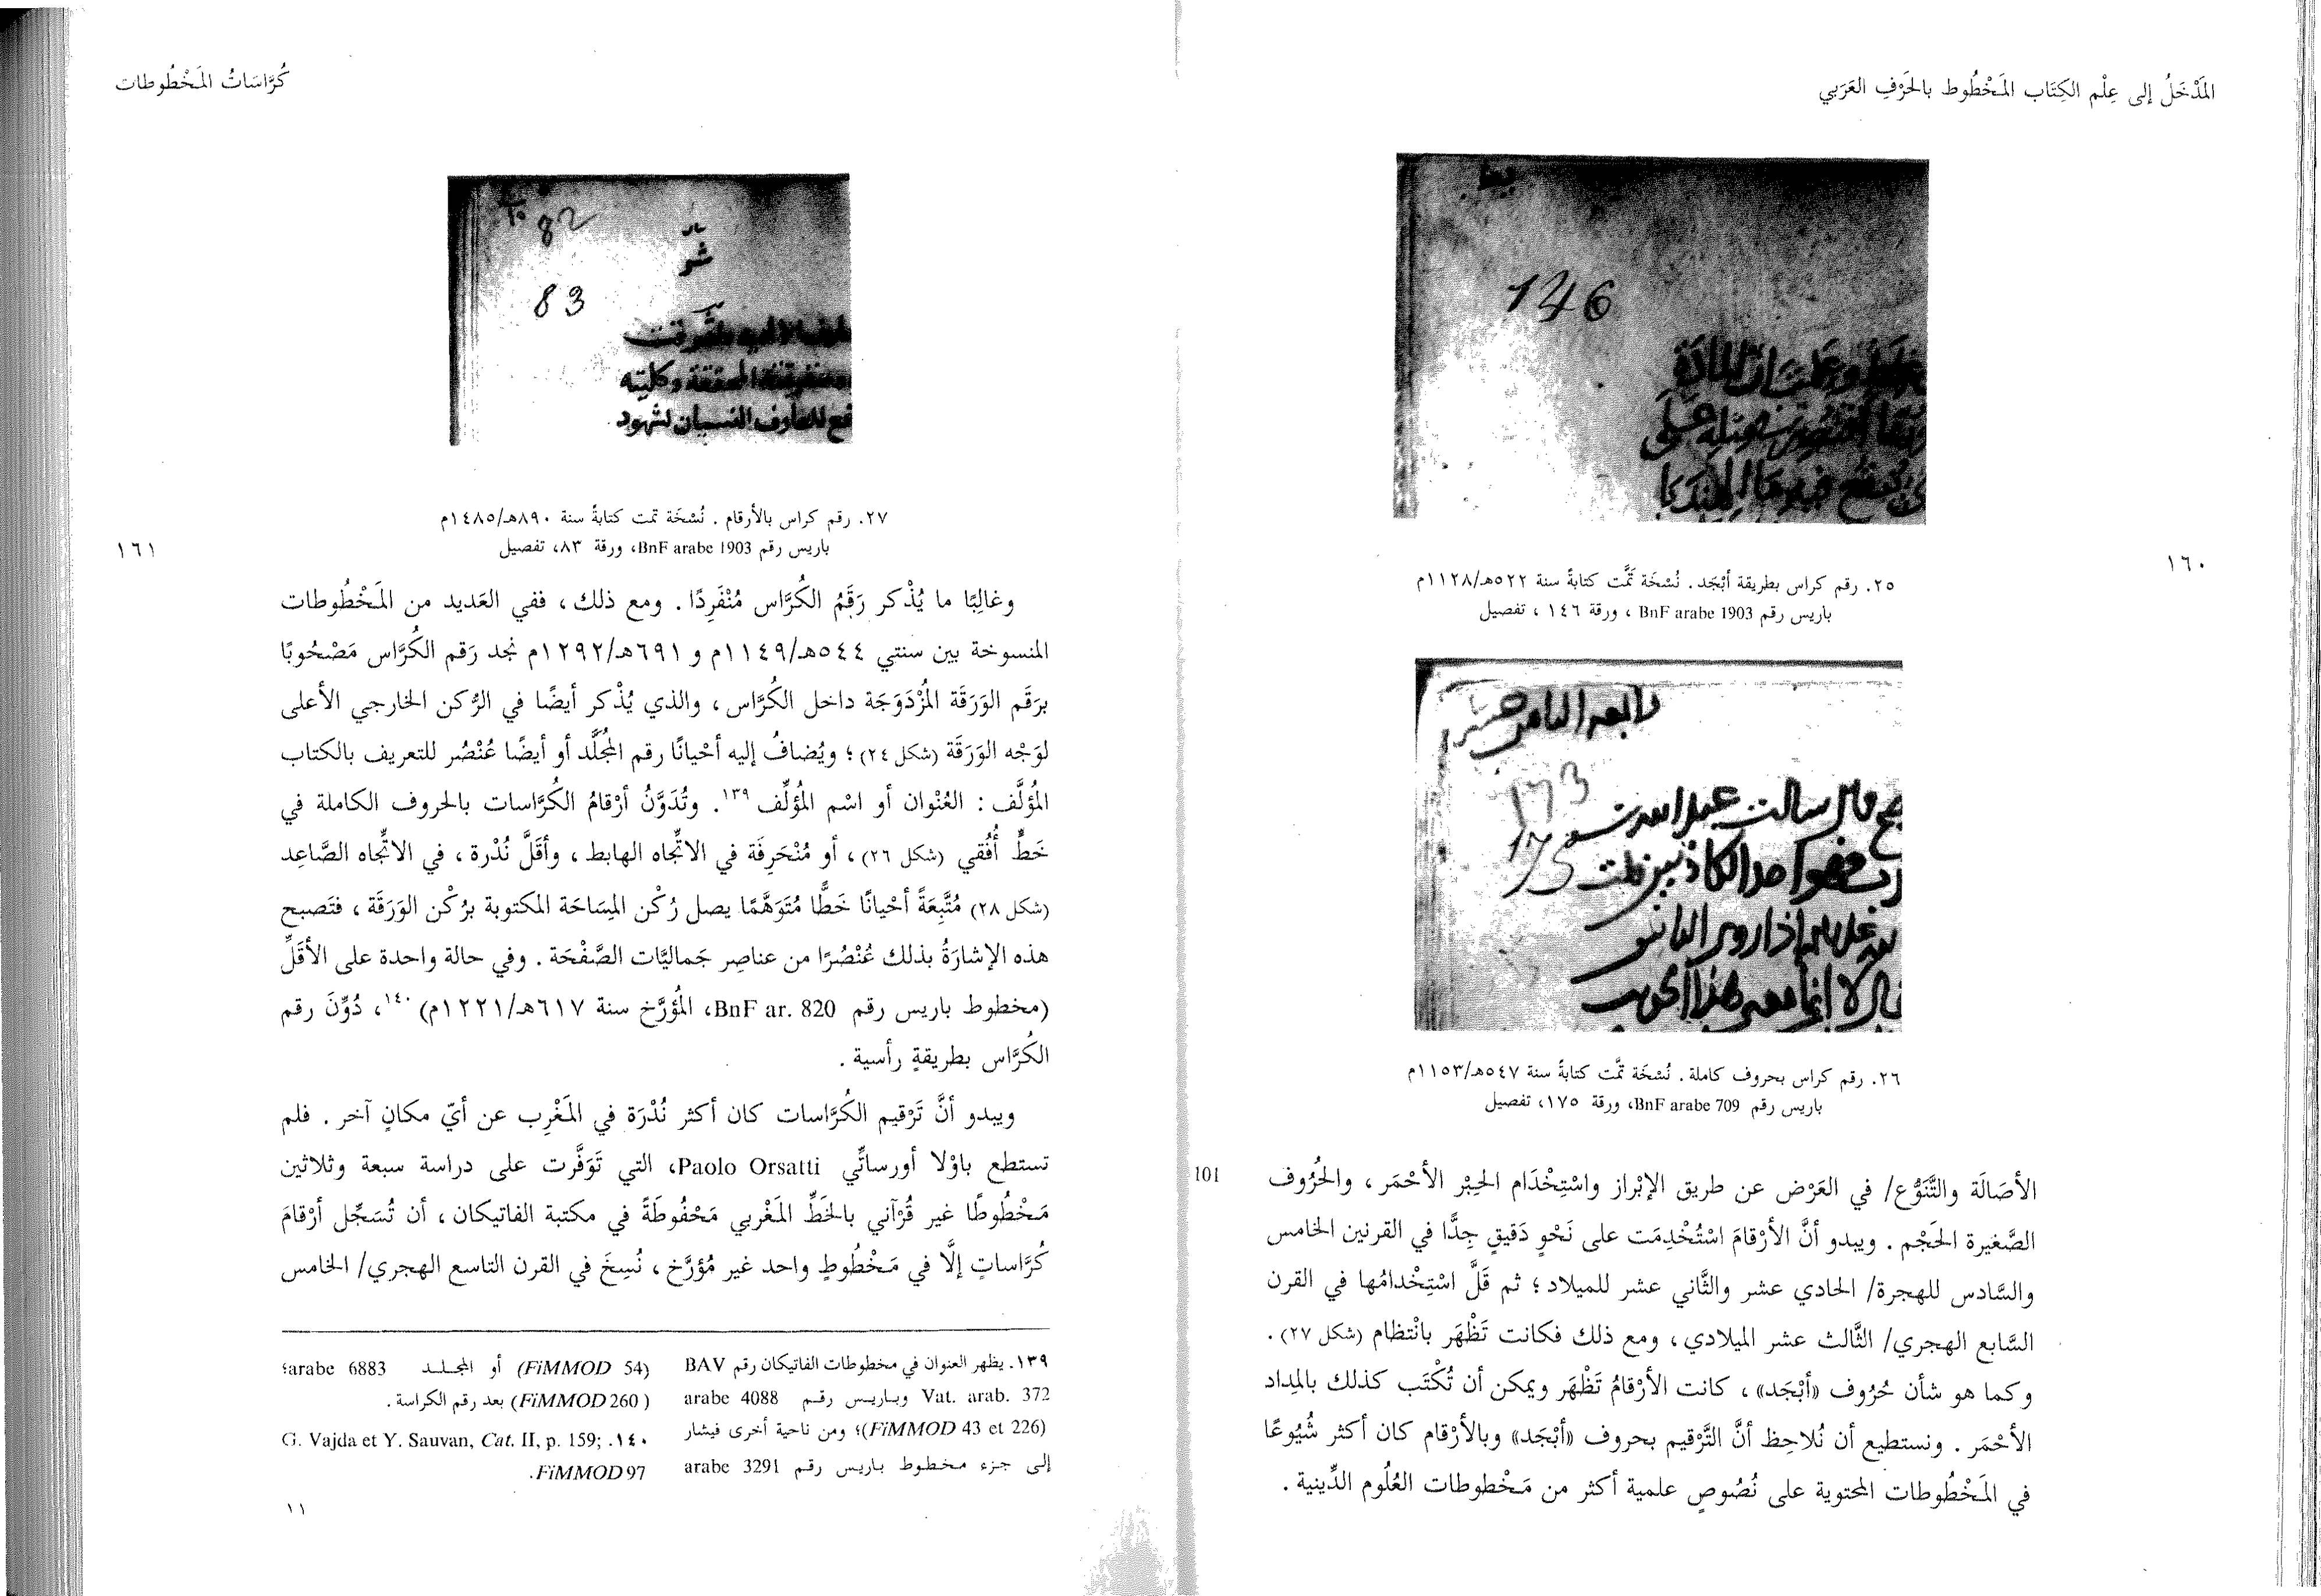 المَدْخَلُ إلى عِلْم الكِتَاب المَخْطُوط بالحَرْفِ العَرَبي
146
١٦٠
٢٥. رقم كراس بطريقة أبْجَد. نُسْخَة تَمَّت كتابةً سنة ٥٢٢هـ/١١٢٨م
باريس رقم BnF arabe 1903 ، ورقة ١٤٦ ، تفصيل
173
175
٢٦. رقم كراس بحروف كاملة. نُسْخَة تمَّت كتابةً سنة ٥٤٧هـ/١١٥٣م
باريس رقم BnF arabe 709، ورقة ١٧٥، تفصيل
101
الأصَالَة والتَّنَوُّع/ في العَرْض عن طريق الإبْراز واسْتِخْدَام الحِبْر الأحْمَر ، والحُرُوف
الصَّغيرة الحَجْم . ويبدو أنَّ الأرْقامَ اسْتُخْدِمَت على نَحْوٍ دَقيقٍ جِدًّا في القرنين الخامس
والسَّادس للهجرة/ الحادي عشر والثَّاني عشر للميلاد ؛ ثم قَلَّ اسْتِخْدامُها في القرن
السَّابع الهجري/ الثَّالث عشر الميلادي ، ومع ذلك فكانت تَظْهَر بانْتظام (شكل ٢٧) .
وكما هو شأن حُرُوف «أبْجَد» ، كانت الأرْقامُ تَظْهَر ويمكن أن تُكْتَب كذلك بالمِداد
الأحْمَر . ونستطيع أن نُلاحِظ أنَّ التَّرْقيم بحروف «أبْجَد» وبالأرْقام كان أكثر شُيُوعًا
في المَخْطُوطات المحتوية على نُصُوصٍ علمية أكثر من مَخْطوطات العُلُوم الدِّينية .
كُرَّاسَاتُ المَخْطُوطات
82
83
وكليته
للعارف النسيان لشهود
٢٧. رقم كراس بالأرقام . نُسْخَة تمت كتابةً سنة ٨٩٠هـ/١٤٨٥م
باريس رقم BnF arabe 1903، ورقة ٨٣، تفصيل
١٦١
وغالِبًا ما يُذْكر رَقَمُ الكُرَّاس مُنْفَرِدًا . ومع ذلك ، ففي العَديد من المَخْطُوطات
المنسوخة بين سنتي ٥٤٤هـ/١١٤٩م و ٦٩١هـ/١٢٩٢م نجد رَقم الكُرَّاس مَصْحُوبًا
برَقَم الوَرَقَة المُزْدَوَجَة داخل الكُرَّاس ، والذي يُذْكر أيضًا في الرُّكن الخارجي الأعلى
لوَجْه الوَرَقَة (شكل ٢٤) ؛ ويُضافُ إليه أحْيانًا رقم المجُلَّد أو أيضًا عُنْصُر للتعريف بالكتاب
المُؤلَّف : العُنْوان أو اسْم المُؤلِّف ١٣٩ . وتُدَوَّنُ أرْقامُ الكُرَّاسات بالحروف الكاملة في
خَطٍّ أُفُقي (شكل ٢٦) ، أو مُنْحَرِفَة في الاتِّجاه الهابط ، وأقَلَّ نُدْرة ، في الاتِّجاه الصَّاعِد
(شكل ٢٨) مُتَّبِعَةً أحْيانًا خَطًّا مُتَوَهَّمًا يصل رُكْن المِسَاحَة المكتوبة برُكْن الوَرَقَة ، فتَصبح
هذه الإشارَةُ بذلك عُنْصُرًا من عناصِر جَماليَّات الصَّفْحَة . وفي حالة واحدة على الأقَلّ
(مخطوط باريس رقم BnF ar. 820، المُؤرَّخ سنة ٦١٧هـ/١٢٢١م) ١٤٠ ، دُوِّنَ رقم
الكُرَّاس بطريقةٍ رأسية .
ويبدو أنَّ تَرْقيم الكُرَّاسات كان أكثر نُدْرَة في المَغْرِب عن أيّ مكانٍ آخر . فلم
تستطع باوْلا أورساتِّي Paolo Orsatti، التي تَوَفَّرت على دراسة سبعة وثلاثين
مَخْطُوطًا غير قُرْآني بالخَطِّ المَغْربي مَحْفُوظَةً في مكتبة الفاتيكان ، أن تُسَجِّل أرْقامَ
كُرَّاساتٍ إلَّا في مَخْطُوطٍ واحد غير مُؤرَّخ ، نُسِخَ في القرن التاسع الهجري/ الخامس
١٣٩. يظهر العنوان في مخطوطات الفاتيكان رقم BAV
Vat. arab. 372 وبـاريـس رقـم arabe 4088
(FiMMOD 43 et 226)؛ ومن ناحية أخرى فيشار
إلى جزء مخطوط باريس رقم arabe 3291
(FiMMOD 54) أو المجلد arabe 6883؛
(FiMMOD 260) بعد رقم الكراسة .
١٤٠. G. Vajda et Y. Sauvan, Cat. II, p. 159;
FiMMOD 97.
١١